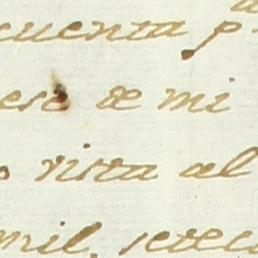 cuenta p
ese de mi
vista al
mil, setec